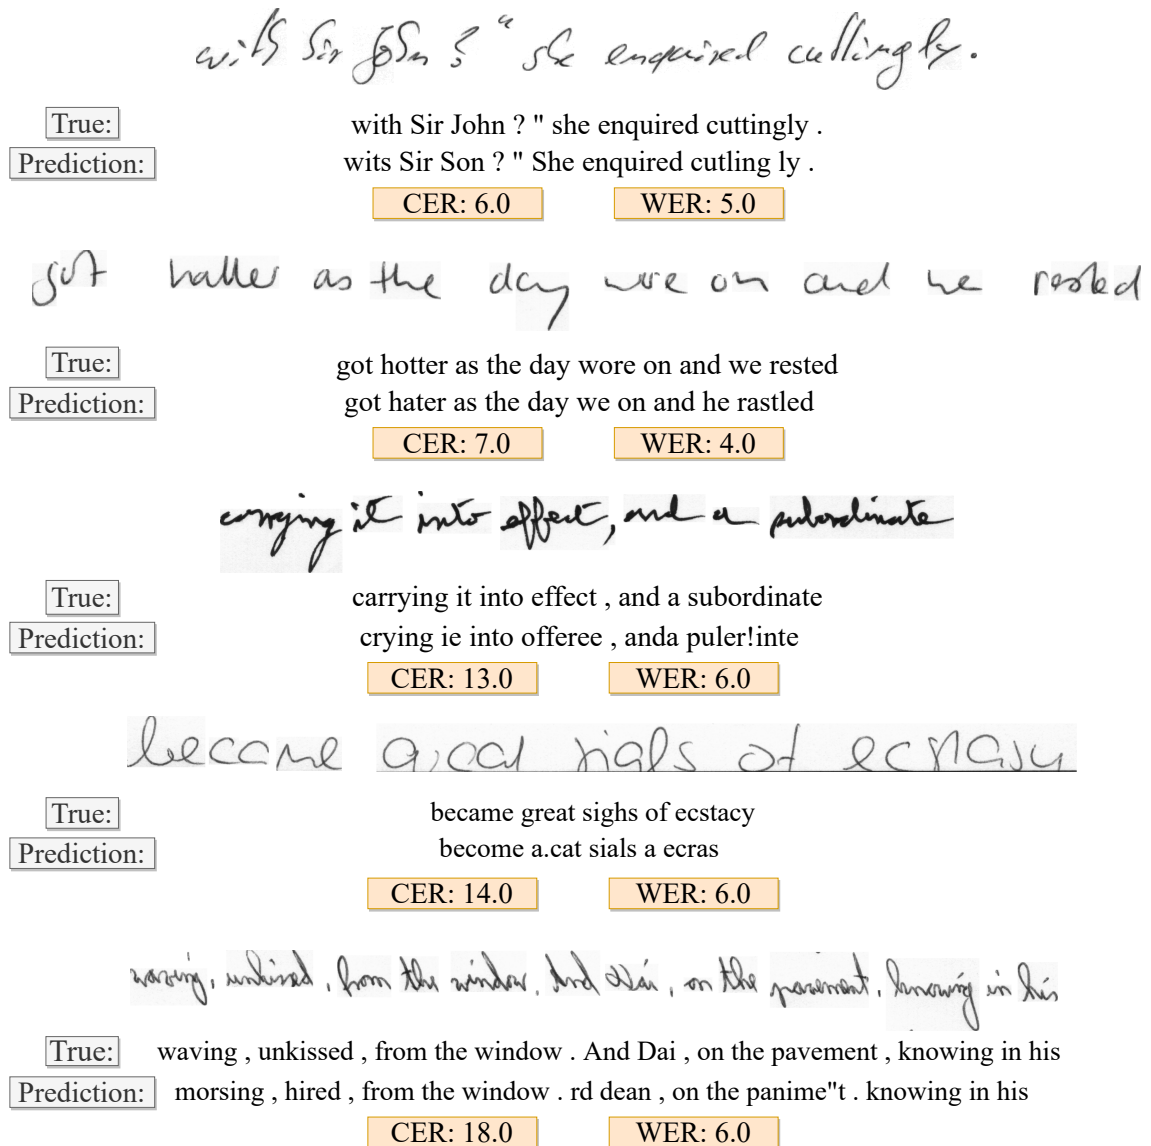 with Sir John ? " she enquired cuttingly.
True: with Sir John ? " she enquired cuttingly .
Prediction: wits Sir Son ? " She enquired cutling ly .
CER: 6.0 WER: 5.0
got hotter as the day wore on and we rested
True: got hotter as the day wore on and we rested
Prediction: got hater as the day we on and he rastled
CER: 7.0 WER: 4.0
carrying it into effect, and a subordinate
True: carrying it into effect , and a subordinate
Prediction: crying ie into offeree , anda puler!inte
CER: 13.0 WER: 6.0
became great sighs of ecstasy
True: became great sighs of ecstacy
Prediction: become a.cat sials a ecras
CER: 14.0 WER: 6.0
waving, unkissed, from the window. And Dai, on the pavement, knowing in his
True: waving , unkissed , from the window . And Dai , on the pavement , knowing in his
Prediction: morsing , hired , from the window . rd dean , on the panime"t . knowing in his
CER: 18.0 WER: 6.0